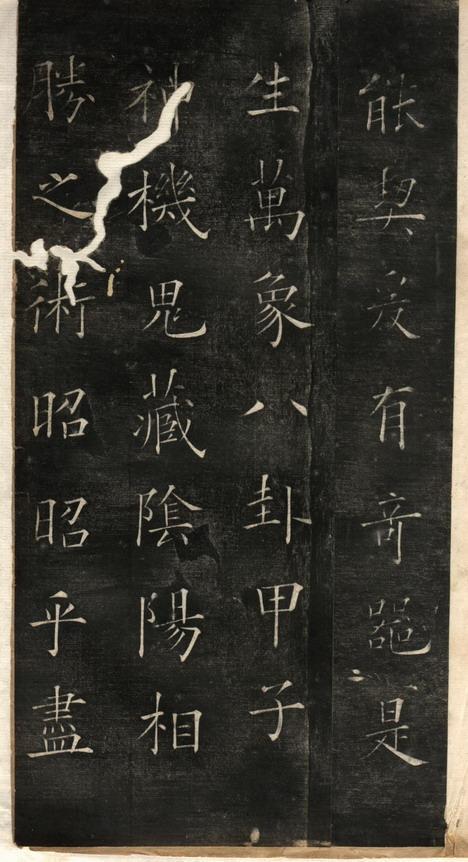 能契爰有竒器是
生萬象八卦甲子
神機鬼藏陰陽相
勝之術昭昭乎盡